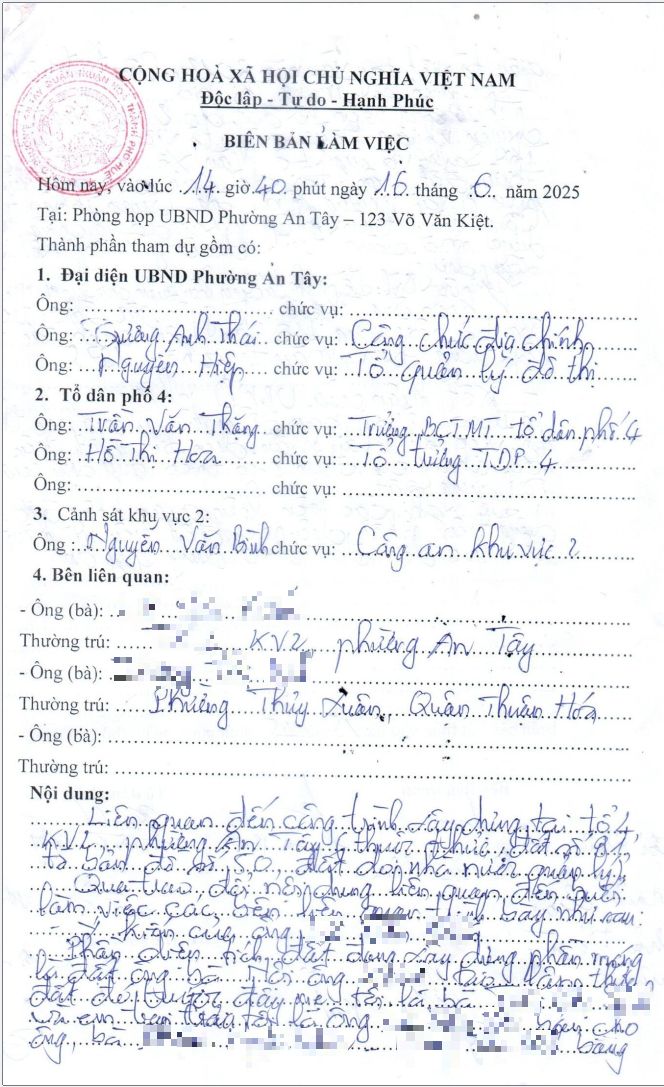 CỘNG HOÀ XÃ HỘI CHỦ NGHĨA VIỆT NAM
Độc lập - Tự do - Hạnh Phúc
BIÊN BẢN LÀM VIỆC
Hôm nay, vào lúc 14 giờ 40 phút ngày 16 tháng 6 năm 2025
Tại: Phòng họp UBND Phường An Tây – 123 Võ Văn Kiệt.
Thành phần tham dự gồm có:
1. Đại diện UBND Phường An Tây:
Ông: ........ chức vụ: ........
Ông: Anh Thái chức vụ: Công chức địa chính
Ông: Nguyễn Hiệp chức vụ: Tổ quản lý đô thị
2. Tổ dân phố 4:
Ông: Trần Văn Thặng chức vụ: Trưởng BCTMT tổ dân phố 4
Ông: Hồ Thị Hoa chức vụ: Tổ trưởng TDP 4
Ông: ........ chức vụ: ........
3. Cảnh sát khu vực 2:
Ông : Nguyễn Văn Bình chức vụ: Công an khu vực 2
4. Bên liên quan:
- Ông (bà): ..
Thường trú: KV2, phường An Tây
- Ông (bà):
Thường trú: Phường Thủy Xuân, Quận Thuận Hóa
- Ông (bà): ........
Thường trú: ........
Nội dung:
Liên quan đến công trình xây dựng tại tổ 4,
KV2, phường An Tây thuộc thửa đất số 81,
tờ bản đồ số 50, đất do nhà nước quản lý.
Qua trao đổi nội dung liên quan đến buổi
làm việc các bên liên quan trình bày như sau:
Ý kiến của ông
Phần diện tích đất đang xây dựng phần móng
là đất ông bà
đất đó trước đây mẹ tôi là bà
và em trai tôi là ông
ông, bà bằng